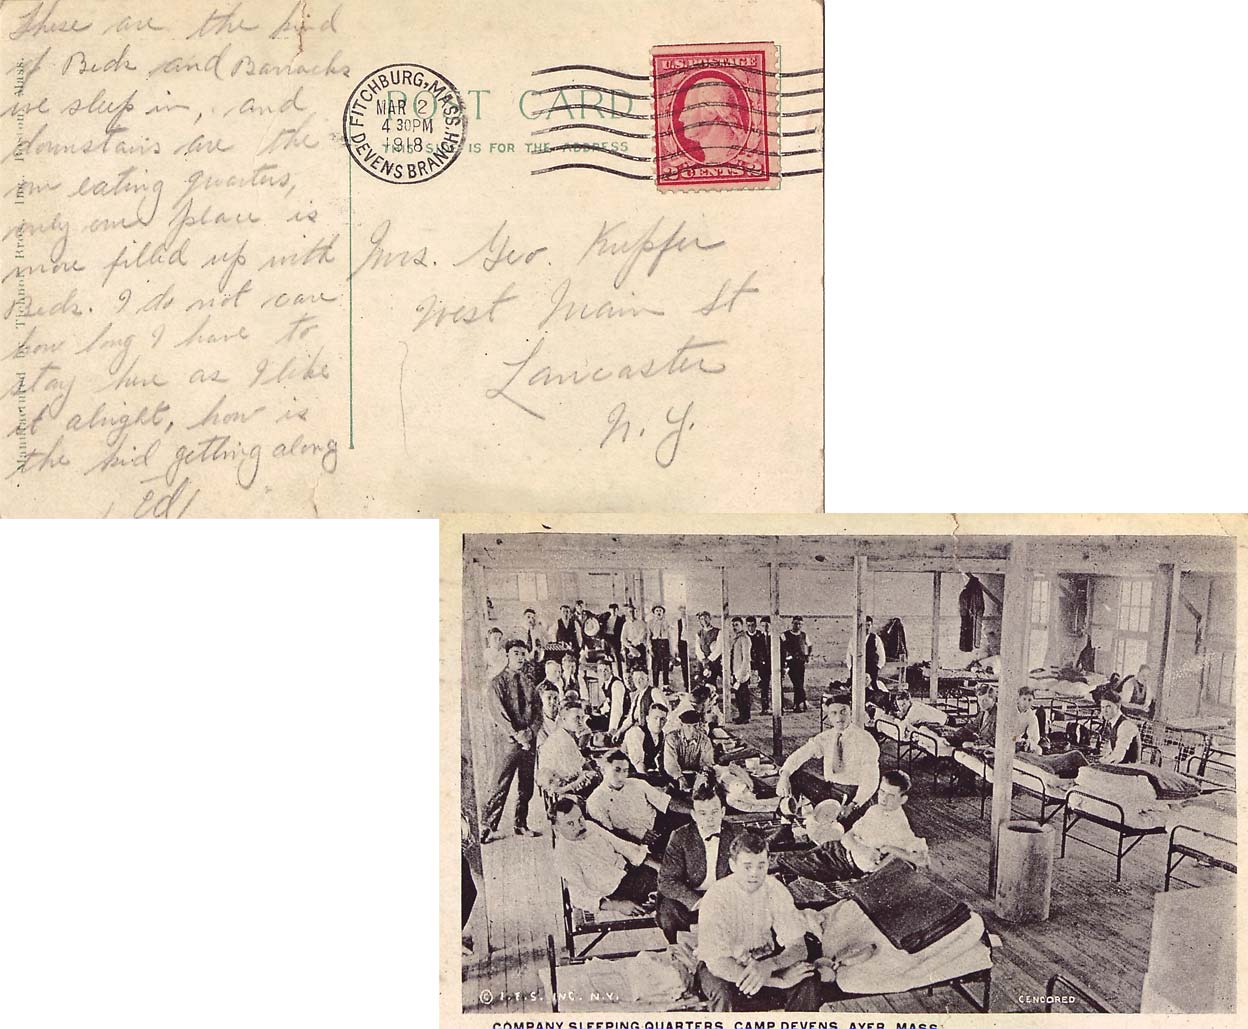 These are the kind
of Beds and Barracks
we sleep in, and
downstairs are the
eating quarters,
only our place is
more filled up with
Beds. I do not care
how long I have to
stay here as I like
it alright, how is
the kid getting along
Ed
Manufactured by Tichnor Bros., Inc., Boston, Mass.
POST CARD
THIS SIDE IS FOR THE ADDRESS
FITCHBURG, MASS.
MAR 2
4 30PM
1918
DEVENS BRANCH.
U.S. POSTAGE
2 CENTS 2
Mrs. Geo. Kupfer
West Main St
Lancaster
N. Y.
© I.F.S. INC. N.Y.
CENCORED
COMPANY SLEEPING QUARTERS, CAMP DEVENS, AYER, MASS.